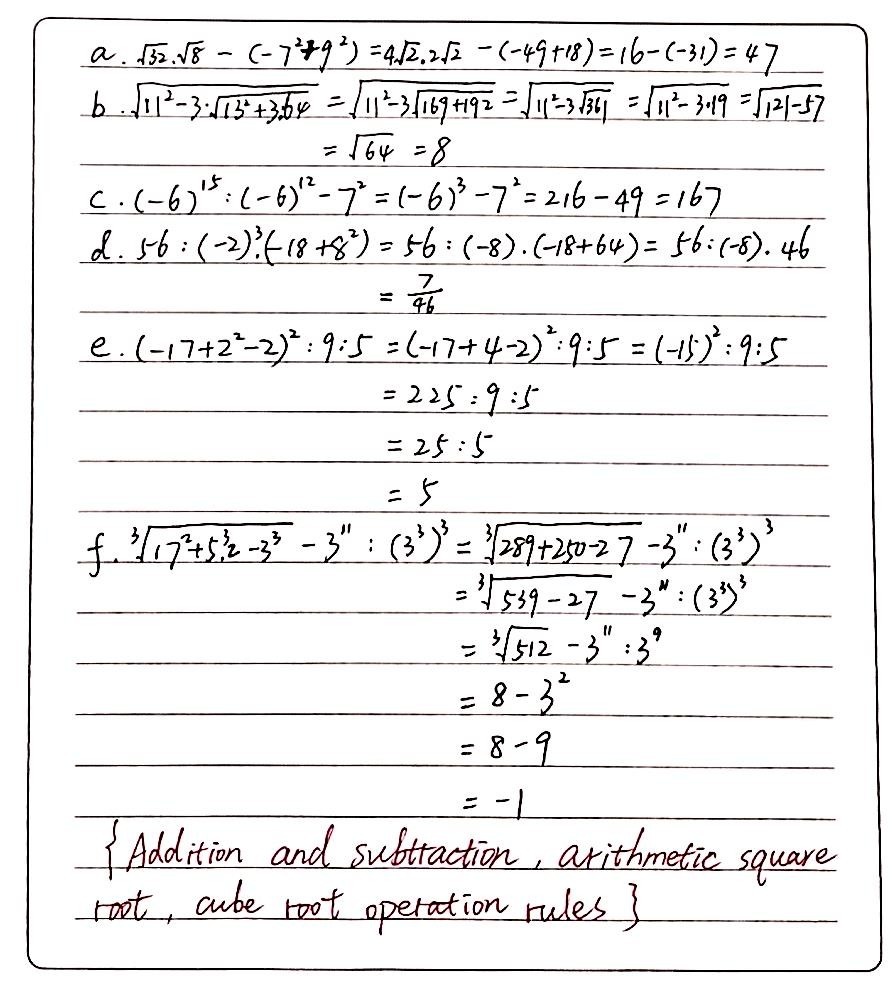 a. √32.√8 - (-7²+9²) = 4√2.2√2 - (-49+18) = 16-(-31) = 47
b. √(11²-3.√(13²+3.64)) = √(11²-3√(169+192)) = √(11²-3√361) = √(11²-3.19) = √(121-57)
= √64 = 8
c. (-6)¹⁵ : (-6)¹² - 7² = (-6)³ - 7² = 216 - 49 = 167
d. 56 : (-2)³.(-18+8²) = 56 : (-8).(-18+64) = 56:(-8). 46
= 7/46
e. (-17+2²-2)² : 9:5 = (-17+4-2)² : 9:5 = (-15)² : 9:5
= 225 : 9 : 5
= 25 : 5
= 5
f. ³√(17²+5³.2-3³) - 3¹¹ : (3³)³ = ³√(289+250-27) - 3¹¹ : (3³)³
= ³√(539-27) - 3¹¹ : (3³)³
= ³√512 - 3¹¹ : 3⁹
= 8 - 3²
= 8 - 9
= -1
{Addition and subttraction, arithmetic square
root, cube root operation rules}